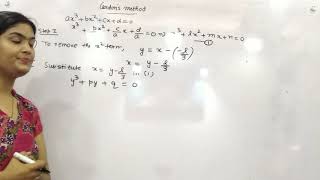 Cardon's method
ax³+bx²+cx+d=0
Step I x³ + b/a x² + c/a x + d/a = 0 ⇒ x³+lx²+mx+n=0
①
To remove the x² term, y = x - (-l/3)
x = y - l/3
Substitute x = y - l/3 in (1)
y³ + py + q = 0